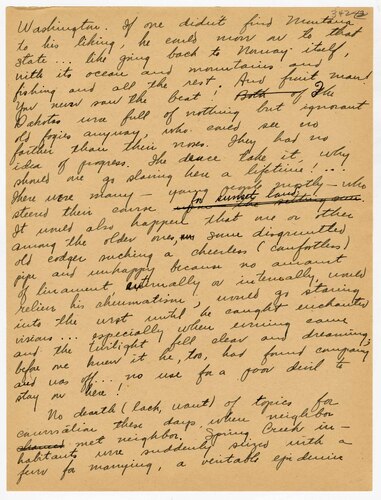 342
Washington. If one didn't find Montana
to his liking, he could move on to that
state... like going back to Norway itself,
with its ocean and mountains and
fishing and all the rest; And fruit man!
You never saw the beat! Both of The
Dakotas were full of nothing but ignorant
old fogies anyway, who could see no
farther than their noses. They had no
idea of progress. The deuce take it, why
should one go slaving here a lifetime!...
There were many — young people mostly — who
steered their course for sunset land
It would also happen that one or other
among the older ones, some disgruntled
old codger sucking a cheerless (comfortless)
pipe and unhappy because no amount
of liniment, externally or internally, would
relieve his rheumatism, would go staring
into the west until he caught enchanted
visions... especially when evening came
and the twilight fell clear and dreaming;
before one knew it he, too, had found company
and was off... no use for a poor devil to
stay on here!
No dearth (lack, want) of topics for
conversation these days, when neighbor
met neighbor. Spring Creek in-
habitants were suddenly seized with a
furor for marrying, a veritable epidemic